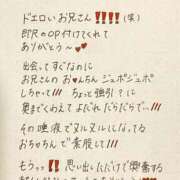 ドエロいお兄さん‼️‼️(笑)
即尺のOP付けてくれて
ありがとう〜❤❤
出会ってすぐなのに
お兄さんのお○んちん ジュポジュポ
しちゃって!!! ちょっと強引?に
奥までくわえて よだれ だらだらで…!!!
その唾液でヌルヌルになってる
おちんちんで素股して!!!
もうっっ!! 思い出しただけで興奮する